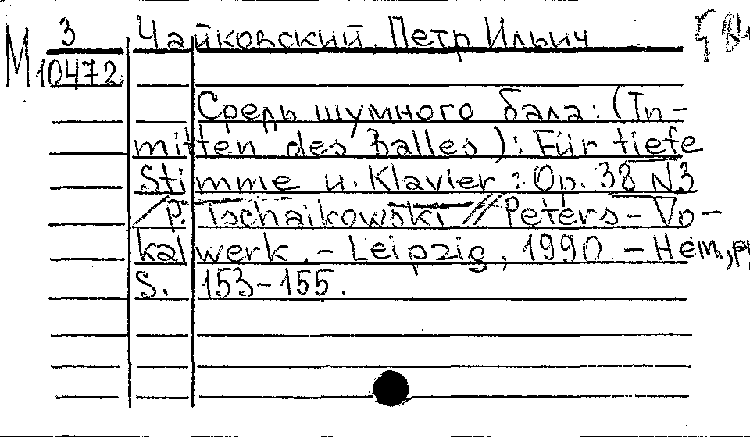 М 3 Чайковский Петр Ильич
10472
Средь шумного бала: (In-
mitten des Balles): Für tiefe
Stimme u. Klavier: Op. 38 N3
/ P. Tschaikowski // Peters - Vo-
kalwerk. - Leipzig, 1990 - Нем., ру
S. 153-155.